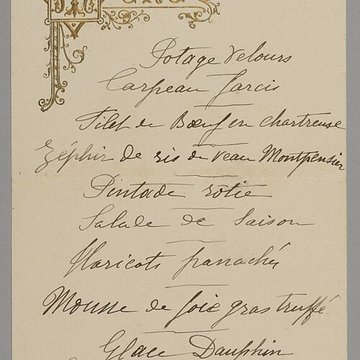 Potage Velours
Carpeau farcis
Filet de Bœuf en chartreuse
Zéphir de ris de veau Montpensier
Pintade rotie
Salade de Saison
Haricots panachés
Mousse de foie gras truffé
Glace Dauphin